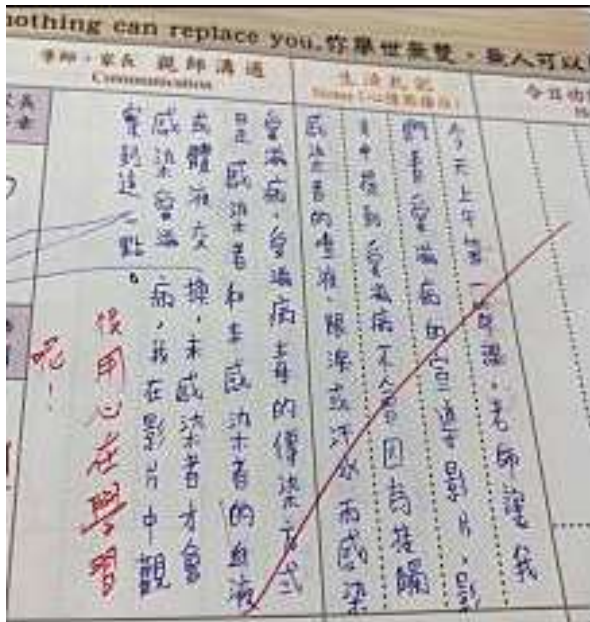 nothing can replace you.你舉世無雙，無人可以
導師、家長 親師溝通
Communication
生活札記
今日功
今天上午第一節課，老師讓我
們看愛滋病的宣導影片，影
片中提到愛滋病不會因為接觸
感染者的唾液、眼淚或汗水而感染
愛滋病，愛滋病毒的傳染方式
是感染者和未感染者的血液
或體液交換，未感染者才會
感染愛滋病，我在影片中觀
察到這一點。
很用心在學習
呢！